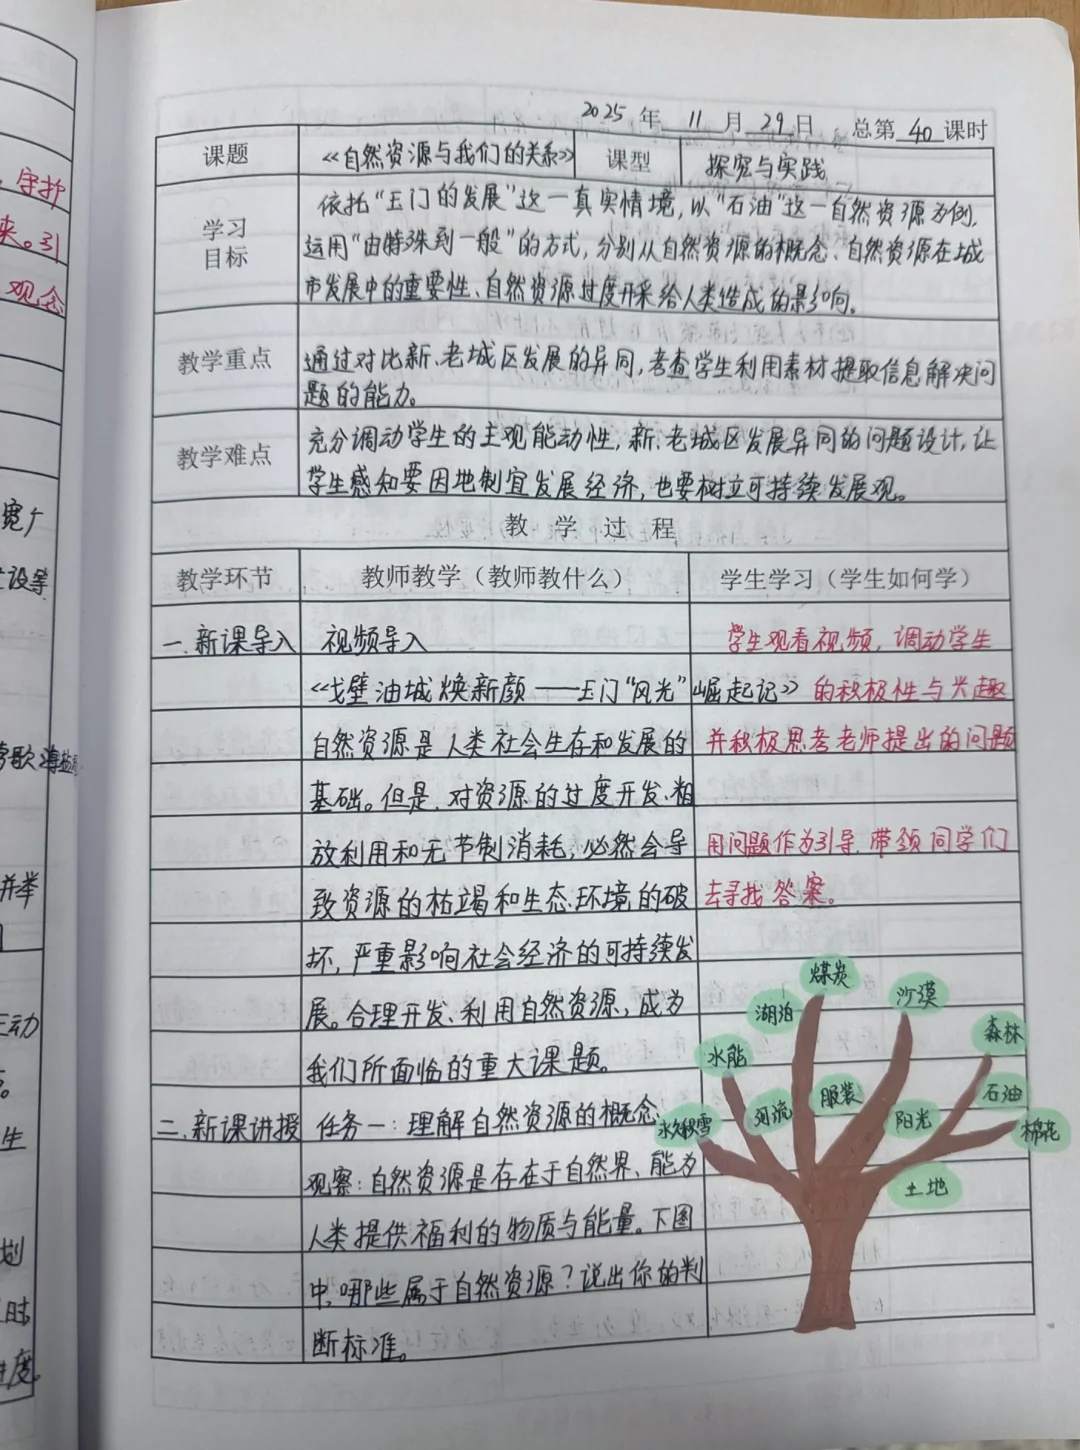 守护
来。引
观念
设等
并举
生
划
时
进度。
2025年 11 月 29 日 总第 40 课时
课题 《自然资源与我们的关系》 课型 探究与实践
学习目标
依托“玉门的发展”这一真实情境,以“石油”这一自然资源为例,
运用“由特殊到一般”的方式,分别从自然资源的概念、自然资源在城
市发展中的重要性、自然资源过度开采给人类造成的影响。
教学重点
通过对比新、老城区发展的异同,考查学生利用素材提取信息解决问
题的能力。
教学难点
充分调动学生的主观能动性,新、老城区发展异同的问题设计,让
学生感知要因地制宜发展经济,也要树立可持续发展观。
教 学 过 程
教学环节 教师教学(教师教什么) 学生学习(学生如何学)
一.新课导入 视频导入 学生观看视频,调动学生
《戈壁油城焕新颜——玉门“风光”崛起记》 的积极性与兴趣
自然资源是人类社会生存和发展的 并积极思考老师提出的问题
基础。但是,对资源的过度开发、粗
放利用和无节制消耗,必然会导 用问题作为引导,带领同学们
致资源的枯竭和生态环境的破 去寻找答案。
坏,严重影响社会经济的可持续发
展。合理开发、利用自然资源,成为
我们所面临的重大课题。
二.新课讲授 任务一:理解自然资源的概念
观察:自然资源是存在于自然界、能为
人类提供福利的物质与能量。下图
中,哪些属于自然资源?说出你的判
断标准。
煤炭
沙漠
湖泊
森林
水能
石油
服装
河流
阳光
棉花
永久积雪
土地